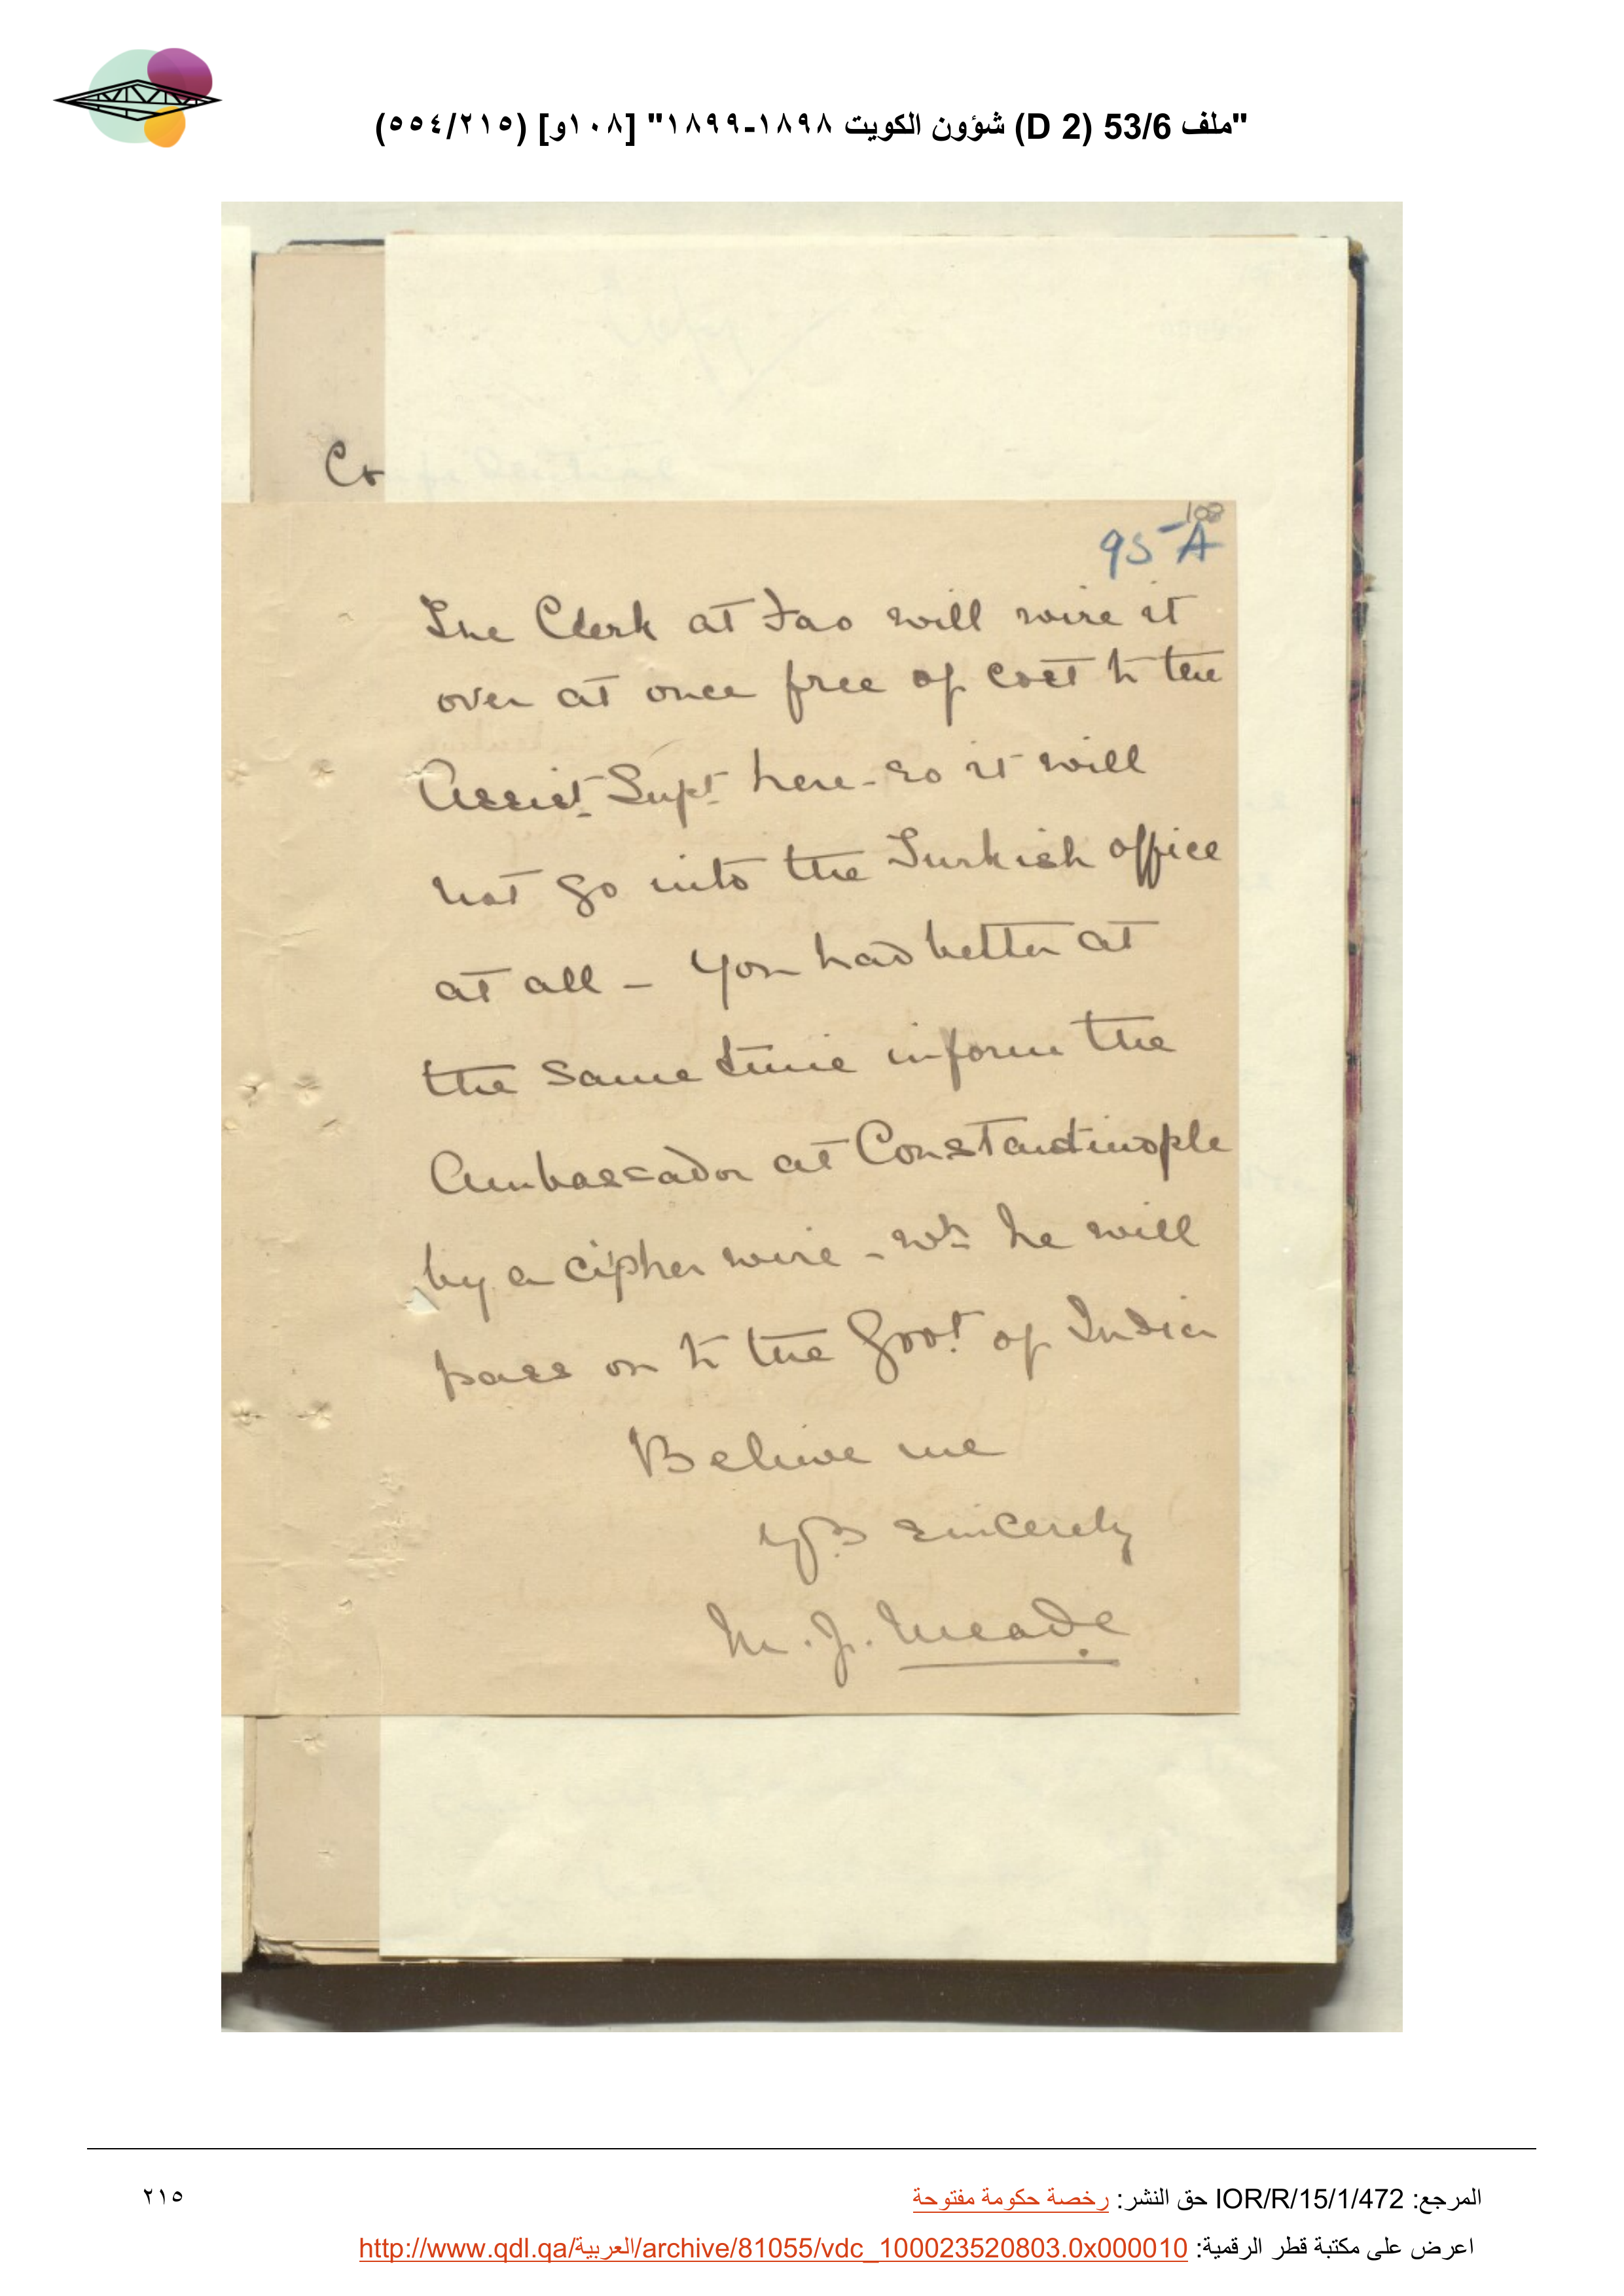 "ملف 53/6 (D 2) شؤون الكويت ١٨٩٨-١٨٩٩" [١٠٨و] (٥٥٤/٢١٥)
Co
108
95-A
The Clerk at Fao will wire it
over at once free of cost to the
Assist. Supt. here - so it will
not go into the Turkish office
at all - You had better at
the same time inform the
Ambassador at Constantinople
by a cipher wire - wh. he will
pass on to the Govt. of India
Believe me
Yrs sincerely
M. J. Meade
المرجع: IOR/R/15/1/472 حق النشر: رخصة حكومة مفتوحة
٢١٥
اعرض على مكتبة قطر الرقمية: http://www.qdl.qa/العربية/archive/81055/vdc_100023520803.0x000010